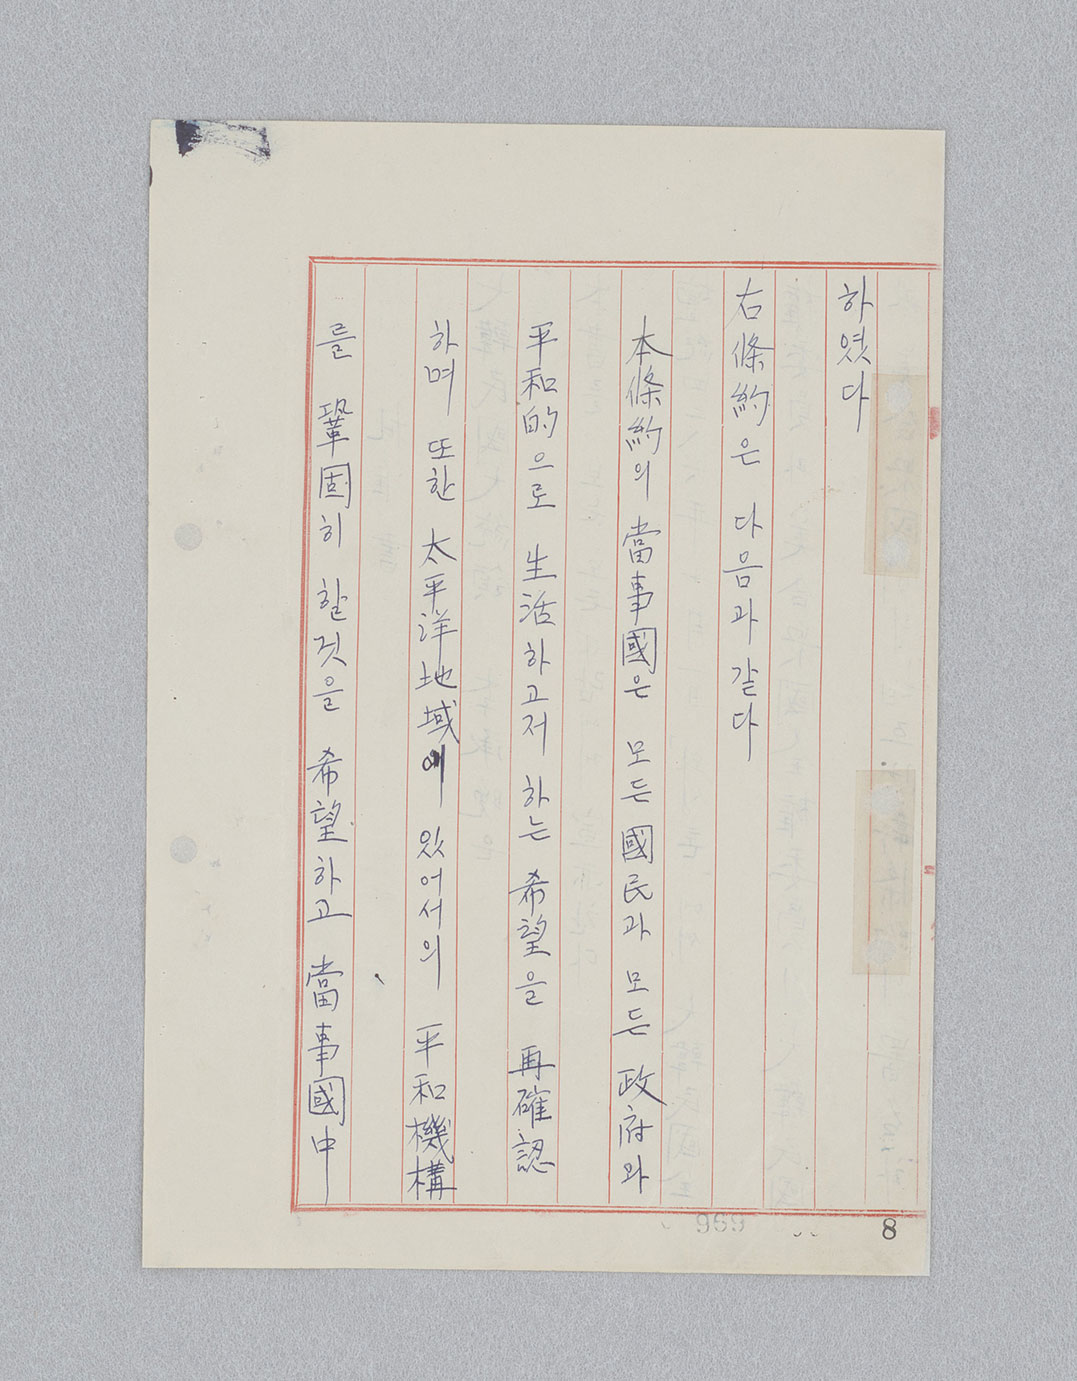 하였다
右條約은 다음과 같다
本條約의 當事國은 모든 國民과 모든 政府와
平和的으로 生活하고저 하는 希望을 再確認
하며 또한 太平洋地域에 있어서의 平和機構
를 鞏固히 할것을 希望하고 當事國中
8